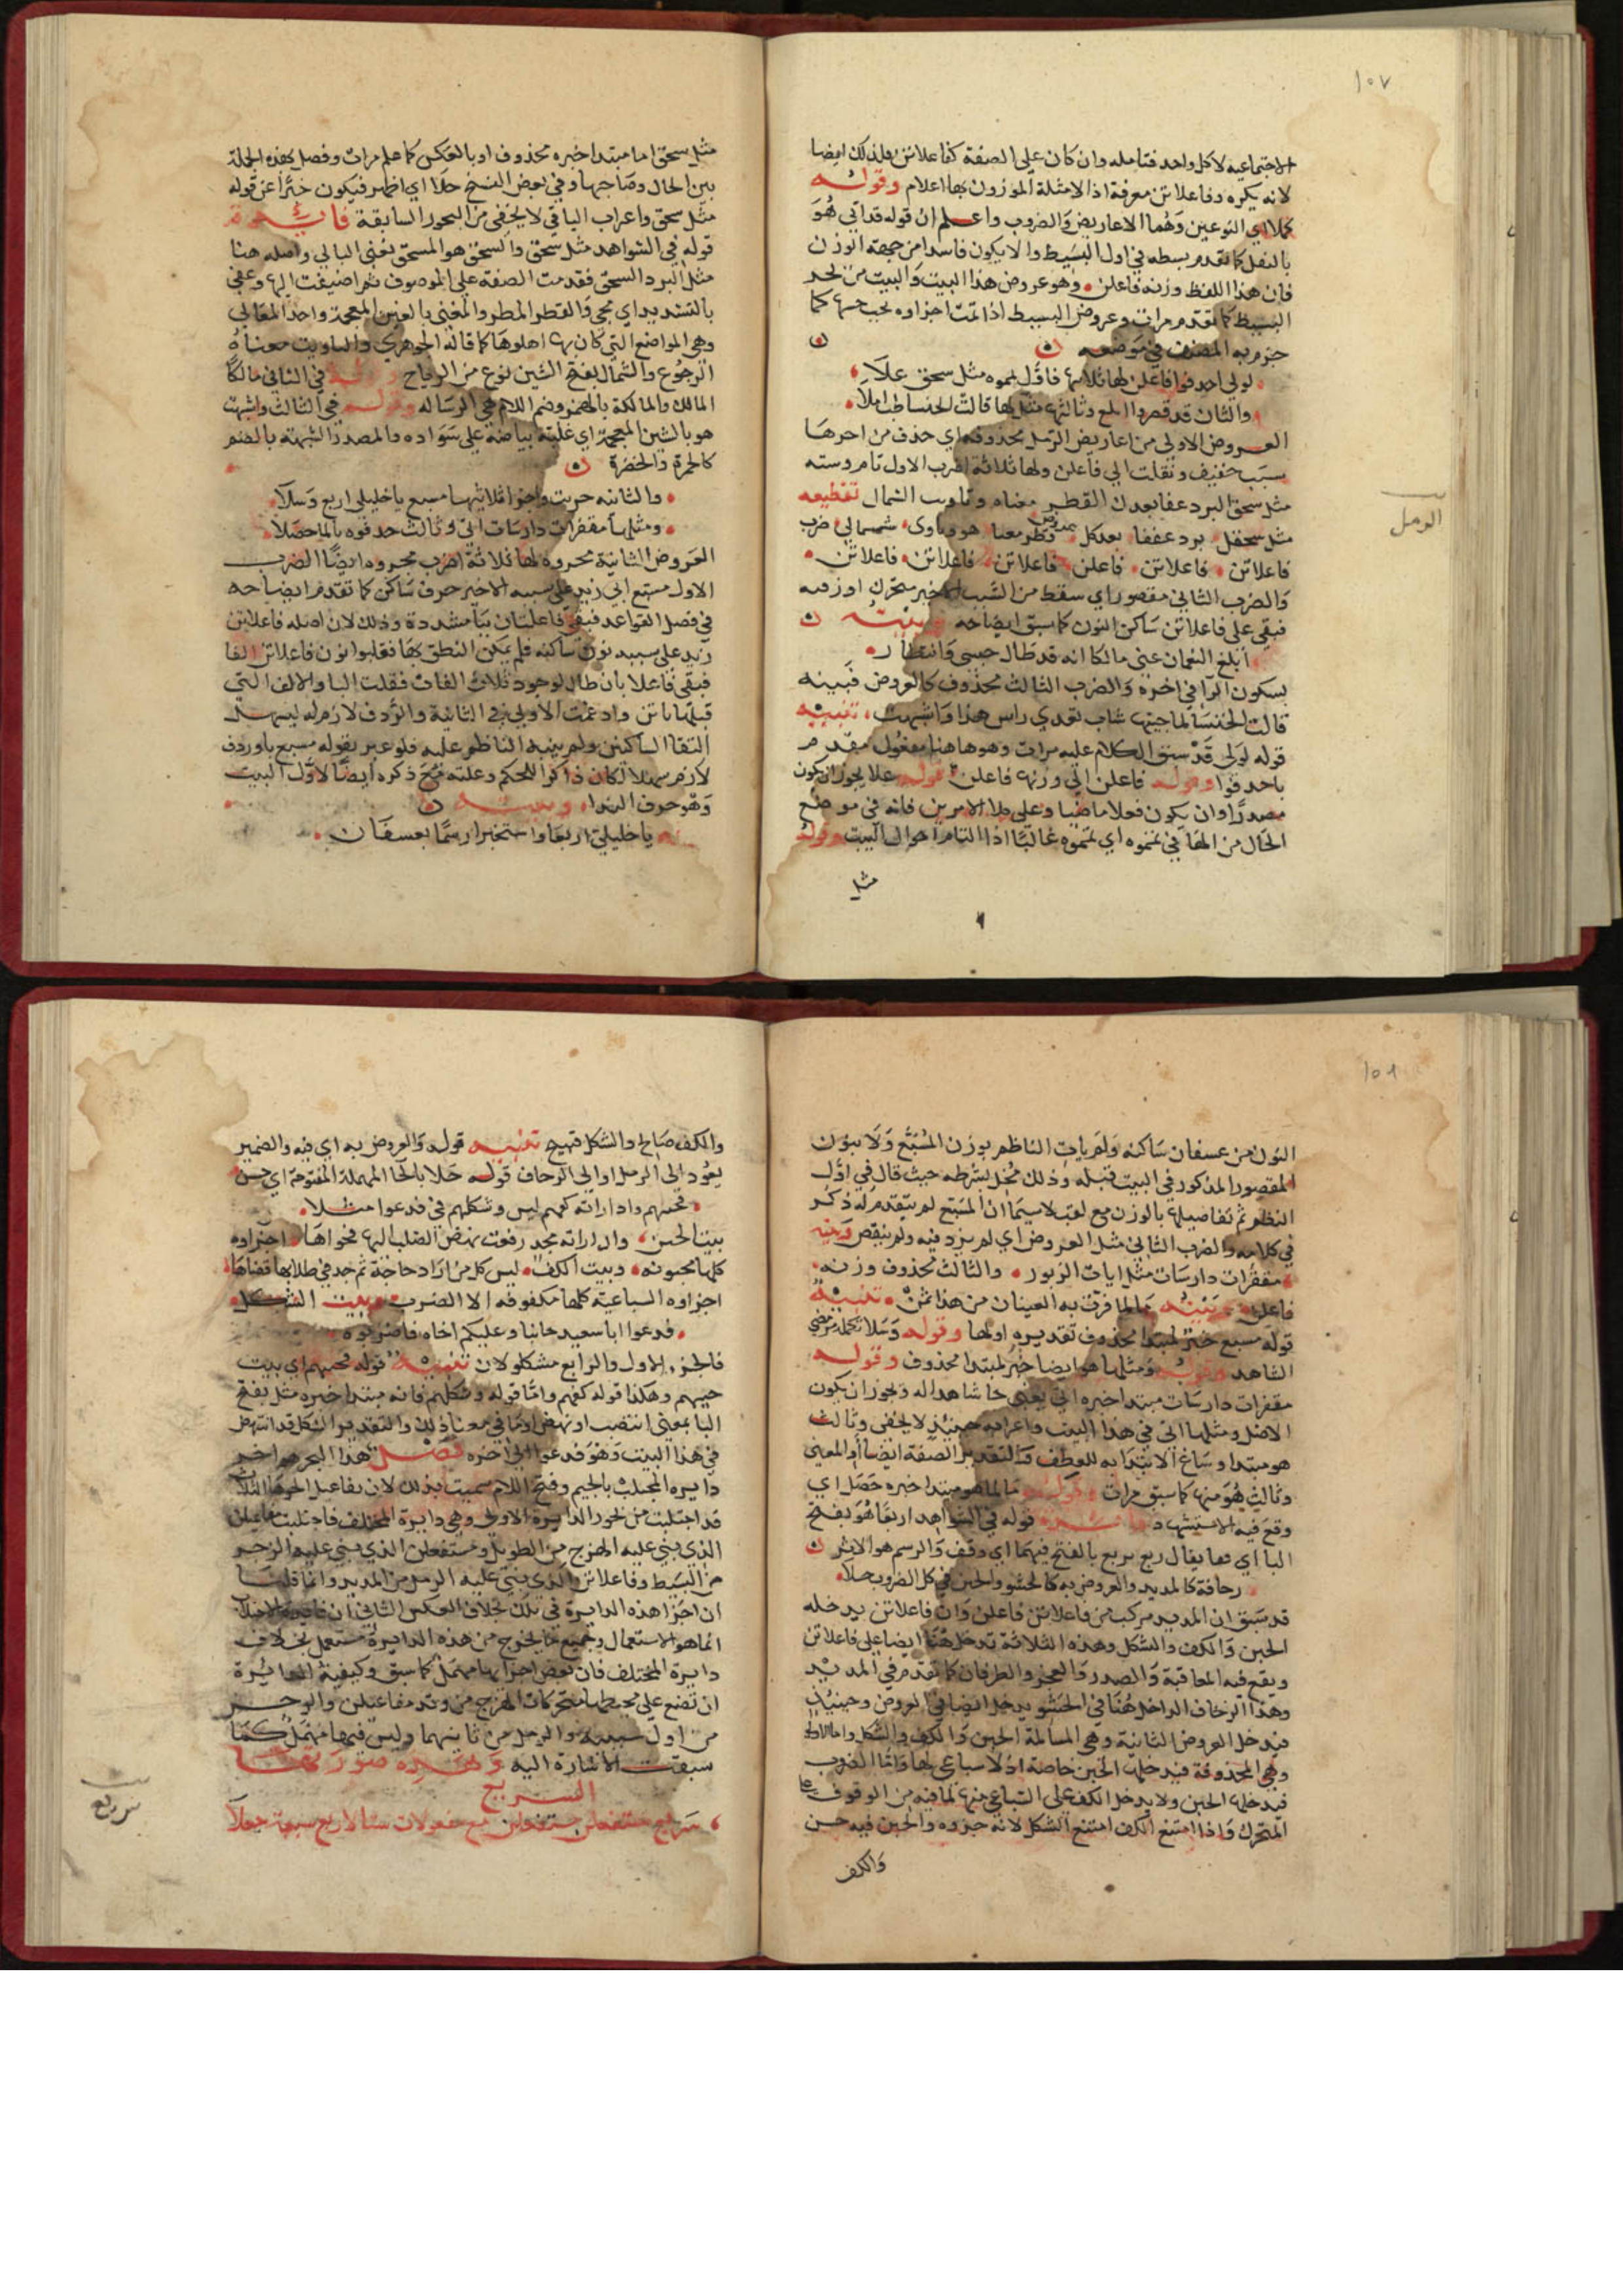 ١٥٧
الاجتماعيه لا كل واحد فتامله وان كان علي الصفة كفاعلاتن فلذلك ايضا
لانه يكره وفاعلاتن معرفة اذ الامثلة الموزون بها اعلام وقوله
كلا اي النوعين وهما الاعاريض والضروب واعلم ان قوله قد اتي هو
بالنقل كما تقدم بسطه في اول البسيط والا يكون فاسدا من جهة الوزن
فان هذا اللفظ وزنه فاعلن وهو عروض هذا البيت والبيت من بحر
البسيط كما تقدم مرات وعروض البسيط اذا تمت اجزاوه يجب خبنها كما
جزم به المصنف في موضعه
لولي احذفوا فاعلن لها ثلاثها فاول تمموه مثل سحق علا
والثان قد قصروا ابلغ وثالثها مثلها قالت الخنسا طب املا
العروض الاولي من اعاريض الرمل محذوفة اي حذف من اخرها
سبب خفيف ونقلت الي فاعلن ولها ثلاثة اضرب الاول تام وبيته
مثل سحق البرد عفا بعدك القطر مغناه وتاويب الشمال تقطيعه
مثل سحقل برد عففا بعدكل قطر مغنا هو وتاوي شمالي ضرب
فاعلاتن فاعلاتن فاعلن فاعلاتن فاعلاتن فاعلاتن
والضرب الثاني مقصور اي سقط من السبب الاخير متحرك اوزنه
فبقي علي فاعلاتن ساكن النون كما سبق ايضاحه بيته
ابلغ النعمان عني مالكا انه قد طال حبسي وانتظار
بسكون الرا في اخره والضرب الثالث محذوف كالعروض فبيته
قالت الخنسا لما جيتها شاب بعدي راس هذا واشتهت تنبيه
قوله لولي قد سبق الكلام عليه مرات وهو ها هنا مفعول مقدم
باحذفوا وقوله فاعلن اي وزنها فاعلن وقوله علا يجوز ان يكون
مصدرا وان يكون فعلا ماضيا وعلي كلا الامرين فانه في موضع
الحال من الها في تمموه اي تمموه غالبا اذ التام احوال البيت وقوله
مثل
الرمل
مثل سحق اما مبتدا خبره محذوف او بالعكس كما علم مرات وفصل بهذه الجملة
بين الحال وصاحبها وفي بعض النسخ حلا اي اظهر فيكون خبرا عن قوله
مثل سحق واعراب الباقي لا يخفي من البحور السابقة فايدة
قوله في الشواهد مثل سحق والسحق هو المسحق بمعني البالي واصله هنا
مثل البرد السحق فقدمت الصفة علي الموصوف ثم اضيفت اليه وعفي
بالتشديد اي محي والقطر المطر والمغني بالغين المعجمة واحد المغاني
وهي المواضع التي كان بها اهلوها كما قاله الجوهري والتاويب معناه
الرجوع والشمال بفتح الشين نوع من الرياح وقوله في الثاني مالكا
المالك والمالكة بالهمز وضم اللام هي الرساله وقوله في الثالث واشتهب
هو بالشين المعجمة اي غلبة بياضه علي سواده والمصدر الشهبة بالضم
كالحمرة والخضرة
والثانيه جزيت واجزا ثلاثها مسبع يا خليلي اربع وسلا
ومثلها مقفرات دارسات اتي وثالث حذفوه بالما حصلا
العروض الثانية مجزوه لها ثلاثة اضرب مجزوه ايضا الضرب
الاول مسبع اي زيد علي سببه الاخير حرف ساكن كما تقدم ايضاحه
في فصل القواعد فبقي فاعليتان بيا مشددة وذلك لان اصله فاعلاتن
زيد علي سببه نون ساكنه فلم يمكن النطق بها فقلبوا نون فاعلاتن الفا
فبقي فاعلا بان طال لوجود ثلاث الفات فقلت اليا والالف التي
قبلها يا تن وادغمت الاولي في الثانية والردف لازم له ليسهل
التقا الساكنين ولم ينبه الناظم عليه فلو عبر بقوله مسبع باوردف
لازم سهلا لكان ذاكرا للحكم وعلته مع ذكره ايضا لاول البيت
وهو حرف الندا وبيته
يا خليلي اربعا واستخبرا رسما بعسفان
١٥٨
النون من عسفان ساكنه ولم يات الناظم بوزن المسبع ولا بنون
المقصور المذكور في البيت قبله وذلك مخل بشرطه حيث قال في اول
النظم ثم تفاصيلها بالوزن مع لقب لا سيما ان المسبع لم يتقدم له ذكر
في كلامه والضرب الثاني مثل العروض اي لم يزد فيه ولم ينقص وبيته
مقفرات دارسات مثل ايات الزبور والثالث محذوف وزنه
فاعلن بيته ما لما قرت به العينان من هذا ثمن تنبيه
قوله مسبع خبر لمبتدا محذوف تقديره اولها وقوله وسلا تكملة من
الشاهد وقوله ومثلها هو ايضا خبر لمبتدا محذوف وقوله
مقفرات دارسات مبتدا خبره اتي يعني جا شاهدا له ويجوز ان يكون
الاصل ومثلها اتي في هذا البيت واعرابه حينيذ لا يخفي وثالث
هو مبتدا وساغ الابتدا به للعطف والتقدير الصفة ايضا او المعني
وثالث هو منها كما سبق مرات وقوله ما لما هو مبتدا خبره حصل اي
وقع فيه الاستشهاد فايدة قوله في الشواهد اربعا هو بفتح
البا اي قفا يقال ربع يربع بالفتح فيهما اي وقف والرسم هو الاثر
زحافة كالمديد والعروض به كالحشو والخبن في كل الضروب حلا
قد سبق ان المديد مركب من فاعلاتن فاعلن وان فاعلاتن يدخله
الخبن والكف والشكل وهذه الثلاثة تدخل هنا ايضا علي فاعلاتن
ويقع فيه المعاقبة والصدر والعجز والطرفان كما تقدم في المديد
وهذا الزحاف الداخل هنا في الحشو يدخل ايضا في العروض وحينيذ
فيدخل العروض الثانية وهي السالمة الخبن والكف والشكل واما الاولي
وهي المحذوفة فيدخلها الخبن خاصة اذ لا سباعي لها واما الضروب
فيدخلها الخبن ولا يدخل الكف علي السباعي منها لما فيه من الوقوف علي
المتحرك واذا امتنع الكف امتنع الشكل لانه جزوه والخبن فيه حسن
والكف
والكف صالح والشكل قبيح تنبيه قوله والعروض به اي فيه والضمير
يعود الي الرمل او الي الزحاف قوله حلا بالحا المهملة المفتوحة اي حسن
فخبنهم واذا راية كفهم ليس وشكلهم في فدعوا مثلا
بيت الخبن واذا راية مجد رفعت نهض الصلت اليها فحواها اجزاوه
كلها مخبونه وبيت الكف ليس كل من اراد حاجة ثم جد في طلابها قضاها
اجزاوه السباعية كلها مكفوفه الا الضرب وبيت الشكل
فدعوا ابا سعيد جانبا وعليكم اخاه فاضربوه
فالجزء الاول والرابع مشكولان تنبيه قوله فخبنهم اي بيت
خبنهم وهكذا قوله كفهم واما قوله وشكلهم فانه مبتدا خبره مثل بفتح
الثا بمعني انتصب او نهض او ما في معنا ذلك والتقدير الشكل قد انتهض
في هذا البيت وهو فدعوا الي اخره فصل هذا البحر هو اخر
دايره المجتلب بالجيم وفتح اللام سميت بذلك لان تفاعيل ابحرها الثلاث
قد اجتلبت من بحور الدايرة الاولي وهي دايرة المختلف فاجتلبت مفاعيلن
الذي بني عليه الهزج من الطويل ومستفعلن الذي بني عليه الرجز
من البسيط وفاعلاتن الذي بني عليه الرمل من المديد وانما قلنا
ان اجزا هذه الدايرة في تلك بخلاف العكس الثاني ان
انما هو الاستعمال وجميع ما يخرج من هذه الدايرة مستعمل بخلاف
دايرة المختلف فان بعض اجزايها مهمل كما سبق وكيفية الدايرة
ان تضع علي محيطها متحركات الهزج من وتد مفاعيلن والرجز
من اول سببه والرمل من ثانيهما وليس فيها مهمل كما
سبقت الاشارة اليه وهذه صورتها
السريع
سريع مستفعلن مستفعلن مع مفعولات ستا لاربع سبعة جعلا
سريع